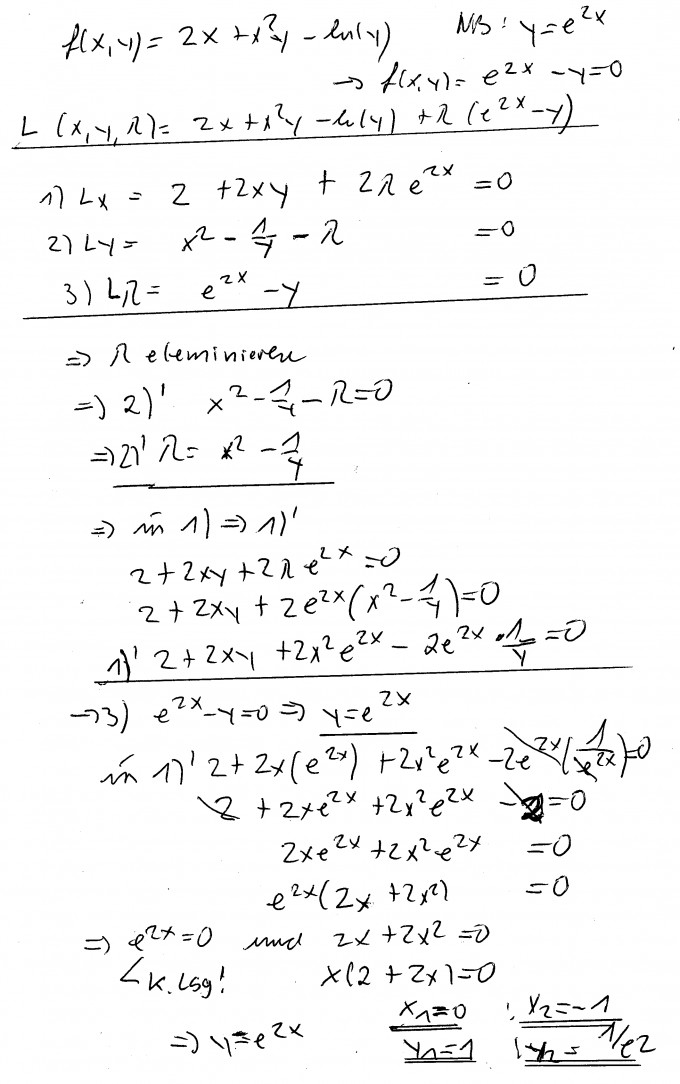 f(x,y) = 2x + x²y - ln(y) NB: y = e^2x
→ f(x,y) = e^2x - y = 0
L (x,y,λ) = 2x + x²y - ln(y) + λ (e^2x - y)
1) Lx = 2 + 2xy + 2λ e^2x = 0
2) Ly = x² - 1/y - λ = 0
3) Lλ = e^2x - y = 0
⇒ λ eleminieren
⇒ 2)' x² - 1/y - λ = 0
⇒ 2)' λ = x² - 1/y
⇒ in 1) ⇒ 1)'
2 + 2xy + 2λ e^2x = 0
2 + 2xy + 2e^2x (x² - 1/y) = 0
1)' 2 + 2xy + 2x²e^2x - 2e^2x · 1/y = 0
→ 3) e^2x - y = 0 ⇒ y = e^2x
in 1)' 2 + 2x(e^2x) + 2x²e^2x - 2e^2x (1/e^2x) = 0
2 + 2xe^2x + 2x²e^2x - 2 = 0
2xe^2x + 2x²e^2x = 0
e^2x (2x + 2x²) = 0
⇒ e^2x = 0 und 2x + 2x² = 0
k. Lsg! x(2 + 2x) = 0
x1 = 0 x2 = -1
⇒ y = e^2x y1 = 1 y2 = 1/e2